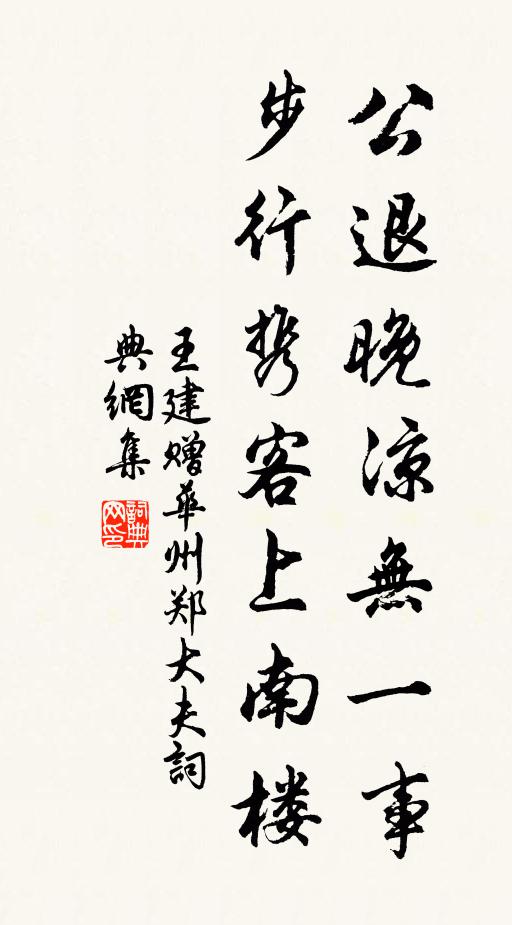 公退晚凉無一事
步行携客上南楼
王建赠華州郑大夫詞
典網集
詞典
网印